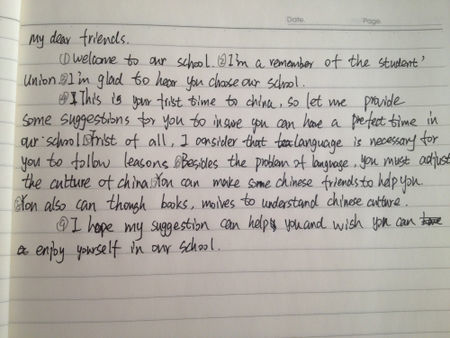 Date. Page.
My dear friends.
①Welcome to our school. ②I'm a remember of the student'
Union ③I'm glad to hear you choose our school.
④This is your frist time to china, so let me provide
some suggestions for you to insure you can have a prefect time in
our school⑤frist of all, I consider that language is necessary for
you to follow leasons ⑥Besides the problem of language, you must adjust
the culture of china⑦You can make some chinese friends to help you.
⑧You also can though books, moives to understand chinese culture.
⑨I hope my suggestion can help you and wish you can
enjoy yowrself in our school.